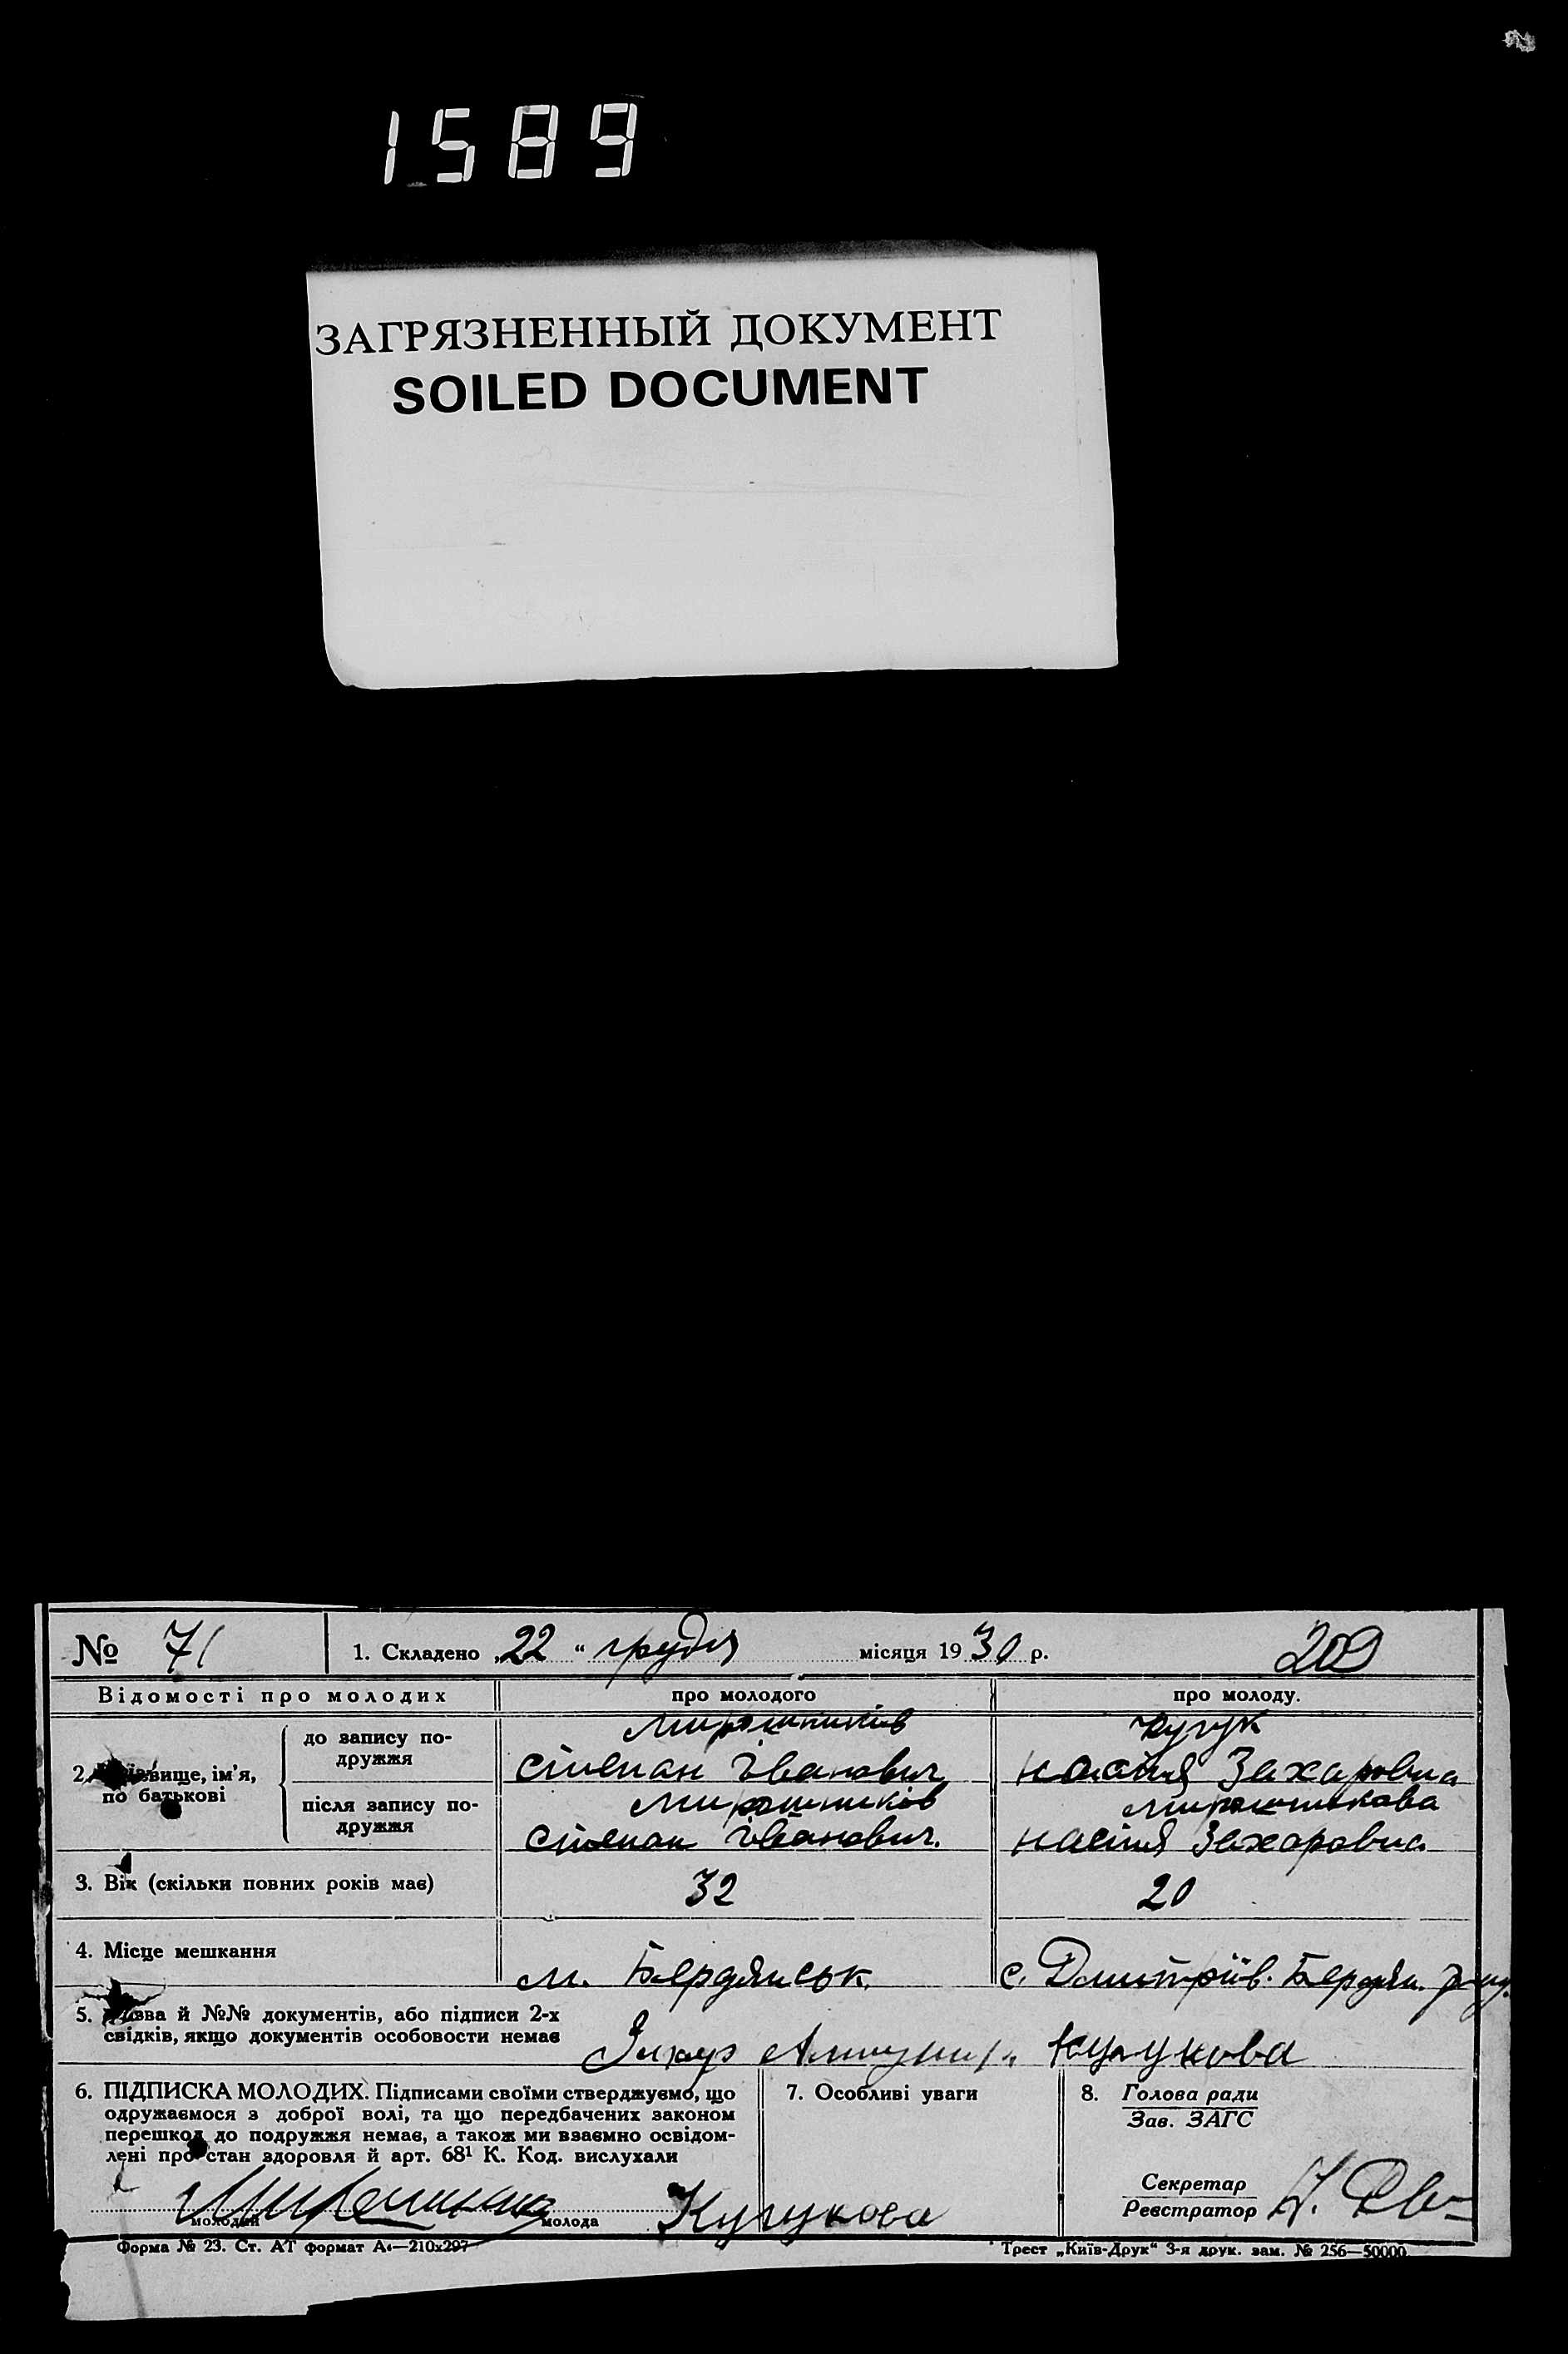 1589
ЗАГРЯЗНЕННЫЙ ДОКУМЕНТ
SOILED DOCUMENT
№ 71
1. Складено „22“ грудня місяця 1930 р.
209
Відомості про молодих
про молодого
про молоду.
2. вище, ім'я,
по батькові
до запису по-
дружжя
Мирошників
Степан Іванович
Настя Захаровна
після запису по-
дружжя
Мирошників
Степан Іванович.
Мирошникова
Настя Захаровна
3. Вік (скільки повних років має)
32
20
4. Місце мешкання
м. Бердянськ.
с. Дмитріїв. Бердян.
5. Назва й №№ документів, або підписи 2-х
свідків, якщо документів особовости немає
6. ПІДПИСКА МОЛОДИХ. Підписами своїми стверджуємо, що
одружаємося з доброї волі, та що передбачених законом
перешкод до подружжя немає, а також ми взаємно освідом-
лені про стан здоровля й арт. 68¹ К. Код. вислухали
молодий
молода
Кугукова
7. Особливі уваги
8. Голова ради
Зав. ЗАГС
Секретар
Реєстратор
Форма № 23. Ст. АТ формат А₄—210х297
Трест „Київ-Друк“ 3-я друк. зам. № 256—50000